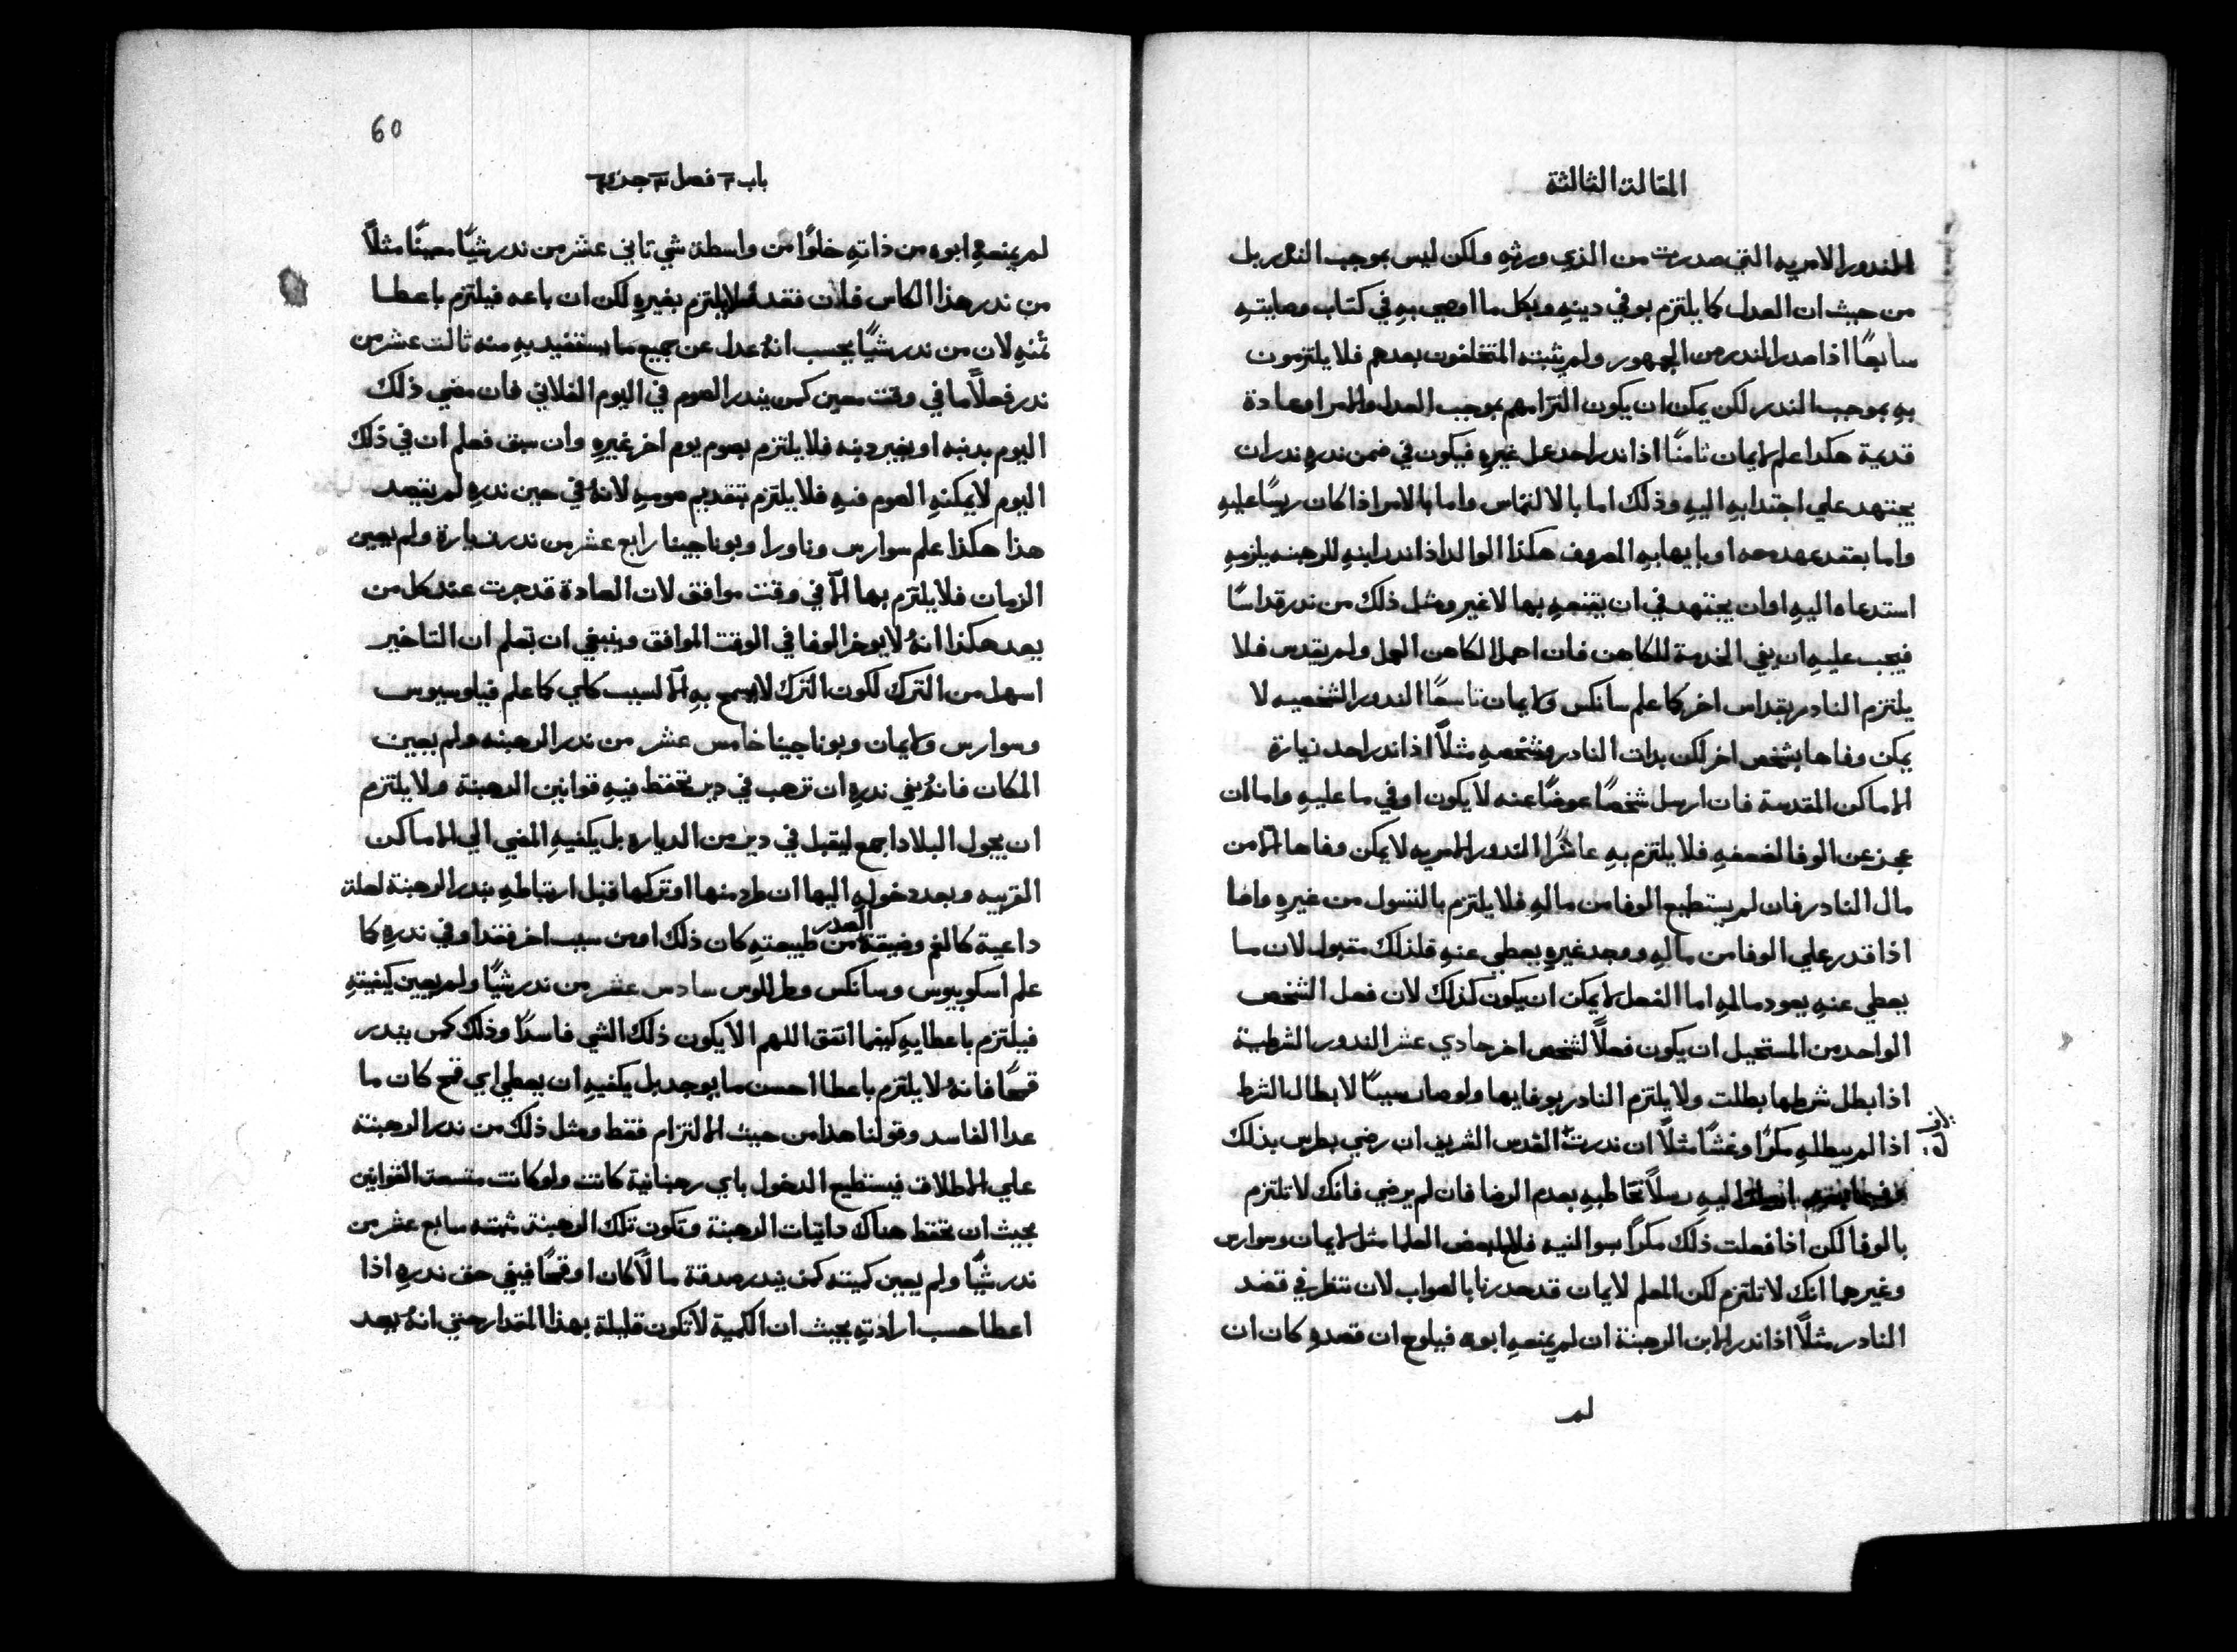 المقالة الثالثة
المندورا الامريه التي صدرت من الذي ورثهِ ولكن ليس بموجب الندر بل
من حيث ان العدل كا يلتزم بوفي دينهِ وبكل ما اوصي بهِ في كتاب وصايتهِ
سابعًا اذا صدر الندر من الجمهور ولم يثبته المتخلفون بعدهم فلا يلتزمون
بهِ بموجب الندر لكن يمكن ان يكون التزامهم بموجب العدل والامر او عادة
قديمة هكدا علم لايمان ثامنًا اذا ندر احد عمل غيرهِ فيكون في ضمن ندرهِ ندر ان
يجتهد علي اجتدابهِ اليهِ وذلك اما بالالتماس واما بالامر اذا كان ريسًا عليهِ
واما بعقد عهد معه او بايهابهِ المعروف هكذا الوالد اذا ندر ابنهِ للرهبنه يلزمهِ
استدعاه اليهِ اوان يجتهد في ان يقنعهِ بها لاغير ومثل ذلك من ندر قداسًا
فيجب عليهِ ان يفي الخدمة للكاهن فان اهمل الكاهن العمل ولم يقدس فلا
يلتزم النادر بقداس اخر كا علم سانكس ولايمان تاسعًا الندور الشخصيه لا
يمكن وفاها بشخص اخر لكن بدات النادر وشخصهِ مثلاً اذا ندر احد زيارة
الاماكن المقدسة فان ارسل شخصًا عوضًا عنه لا يكون اوفي ما عليهِ واما ان
عجز عن الوفا لضعفهِ فلا يلتزم بهِ عاشرًا الندور الامريه لا يمكن وفاها الا من
مال النادر فان لم يستطيع الوفا من مالهِ فلا يلتزم بالتسول من غيرهِ واما
اذا قدر علي الوفا من مالهِ ووجد غيرهِ يعطي عنهِ فلذلك مقبول لان ما
يعطي عنهِ يعود مالهِ اما الفعل لا يمكن ان يكون كذلك لان فعل الشخص
الواحد من المستحيل ان يكون فعلاً لشخص اخر حادي عشر الندور الشرطية
اذا بطل شرطها بطلت ولا يلتزم النادر بوفايها ولو صار سببًا لابطال الشرط
اذا لم يبطلهِ مكرًا وغشًا مثلاً ان ندرت القدس الشريف ان رضي بطرس بذلك
اليهِ رسلاً تخاطبهِ بعدم الرضا فان لم يرضي فانك لا تلتزم
بالوفا لكن اذا فعلت ذلك مكراً بسو النيه فلبعض العلما مثل لايمان وسوارس
وغيرهما انك لا تلتزم لكن المعلم لايمان قد حدرنا بالصواب لان ننظر في قصد
النادر مثلاً اذا ندر الابن الرهبنة ان لم يمنعهِ ابوه فيلوح ان قصده كان ان
لم
60
باب فصل جدك
لم يمنعهِ ابوه من ذاتهِ خلوًا من واسطة شي تاني عشر من ندر شيًا معينًا مثلاً
من ندر هذا الكاس فان فقد فلا يلتزم بغيرهِ لكن ان باعه فيلتزم باعطا
ثمنهِ لان من ندر شيًا يحسب انهُ عدل عن جميع ما يستفيد بهِ منه ثالت عشر من
ندر فعلاً ما في وقت معين كمن يندر الصوم في اليوم الفلاني فان مضي ذلك
اليوم بدنبه او بغير دنبه فلا يلتزم بصوم يوم اخر غيرهِ وان سبق فعلم ان في ذلك
اليوم لا يمكنهِ الصوم فيهِ فلا يلتزم بتقديم صومهِ لانهُ في حين ندرهِ لم يقصد
هذا هكذا علم سوارس وناورا وبوناجينا رابع عشر من ندر زيارة ولم يعين
الزمان فلا يلتزم بها الا في وقت موافق لان العادة قد جرت عند كل من
يعد هكذا انهُ لا يوخر الوفا في الوقت الموافق وينبغي ان تعلم ان التاخير
اسهل من الترك لكون الترك لا يسمح بهِ الا لسبب كلي كا علم فيلوسيوس
وسوارس ولايمان وبوناجينا خامس عشر من ندر الرهبنه ولم يعين
المكان فانهُ يفي ندرهِ ان ترهب في دير تحفظ فيهِ قوانين الرهبنة ولا يلتزم
ان يجول البلاد اجمع ليقبل في دير من الدياره بل يكفيهِ المضي الي الاماكن
القريبه وبعد دخولهِ اليها ان طرد منها او تركها قبل ارتباطهِ بندر الرهبنة لعلة
داعية كالغم وضيقة الصدر من طبيعتهِ كان ذلك او من سبب اخر فقد اوفي ندرهِ كا
علم اسكوبيوس وسانكس وطللوس سادس عشر من ندر شيًا ولم يعين كيفيتهِ
فيلتزم باعطايهِ كيفما اتفق اللهم الا يكون ذلك الشي فاسدًا وذلك كمن يندر
قمحًا فانهُ لا يلتزم باعطا احسن ما يوجد بل يكفيهِ ان يعطي اي قمح كان ما
عدا الفاسد وقولنا هدا من حيث الالتزام فقط ومثل ذلك من ندر الرهبنة
علي الاطلاق فيستطيع الدخول باي رهبانية كانت ولو كانت متسعة القوانين
بحيث ان تحفظ هناك داتيات الرهبنة وتكون تلك الرهبنة مثبته سابع عشر من
ندر شيًا ولم يعين كميته كمن يندر صدقة مالاً كان او قمحًا فيفي حق ندرهِ اذا
اعطا حسب ارادتهِ بحيث ان الكمية لا تكون قليلة بهذا المقدار حتي انهُ يعد